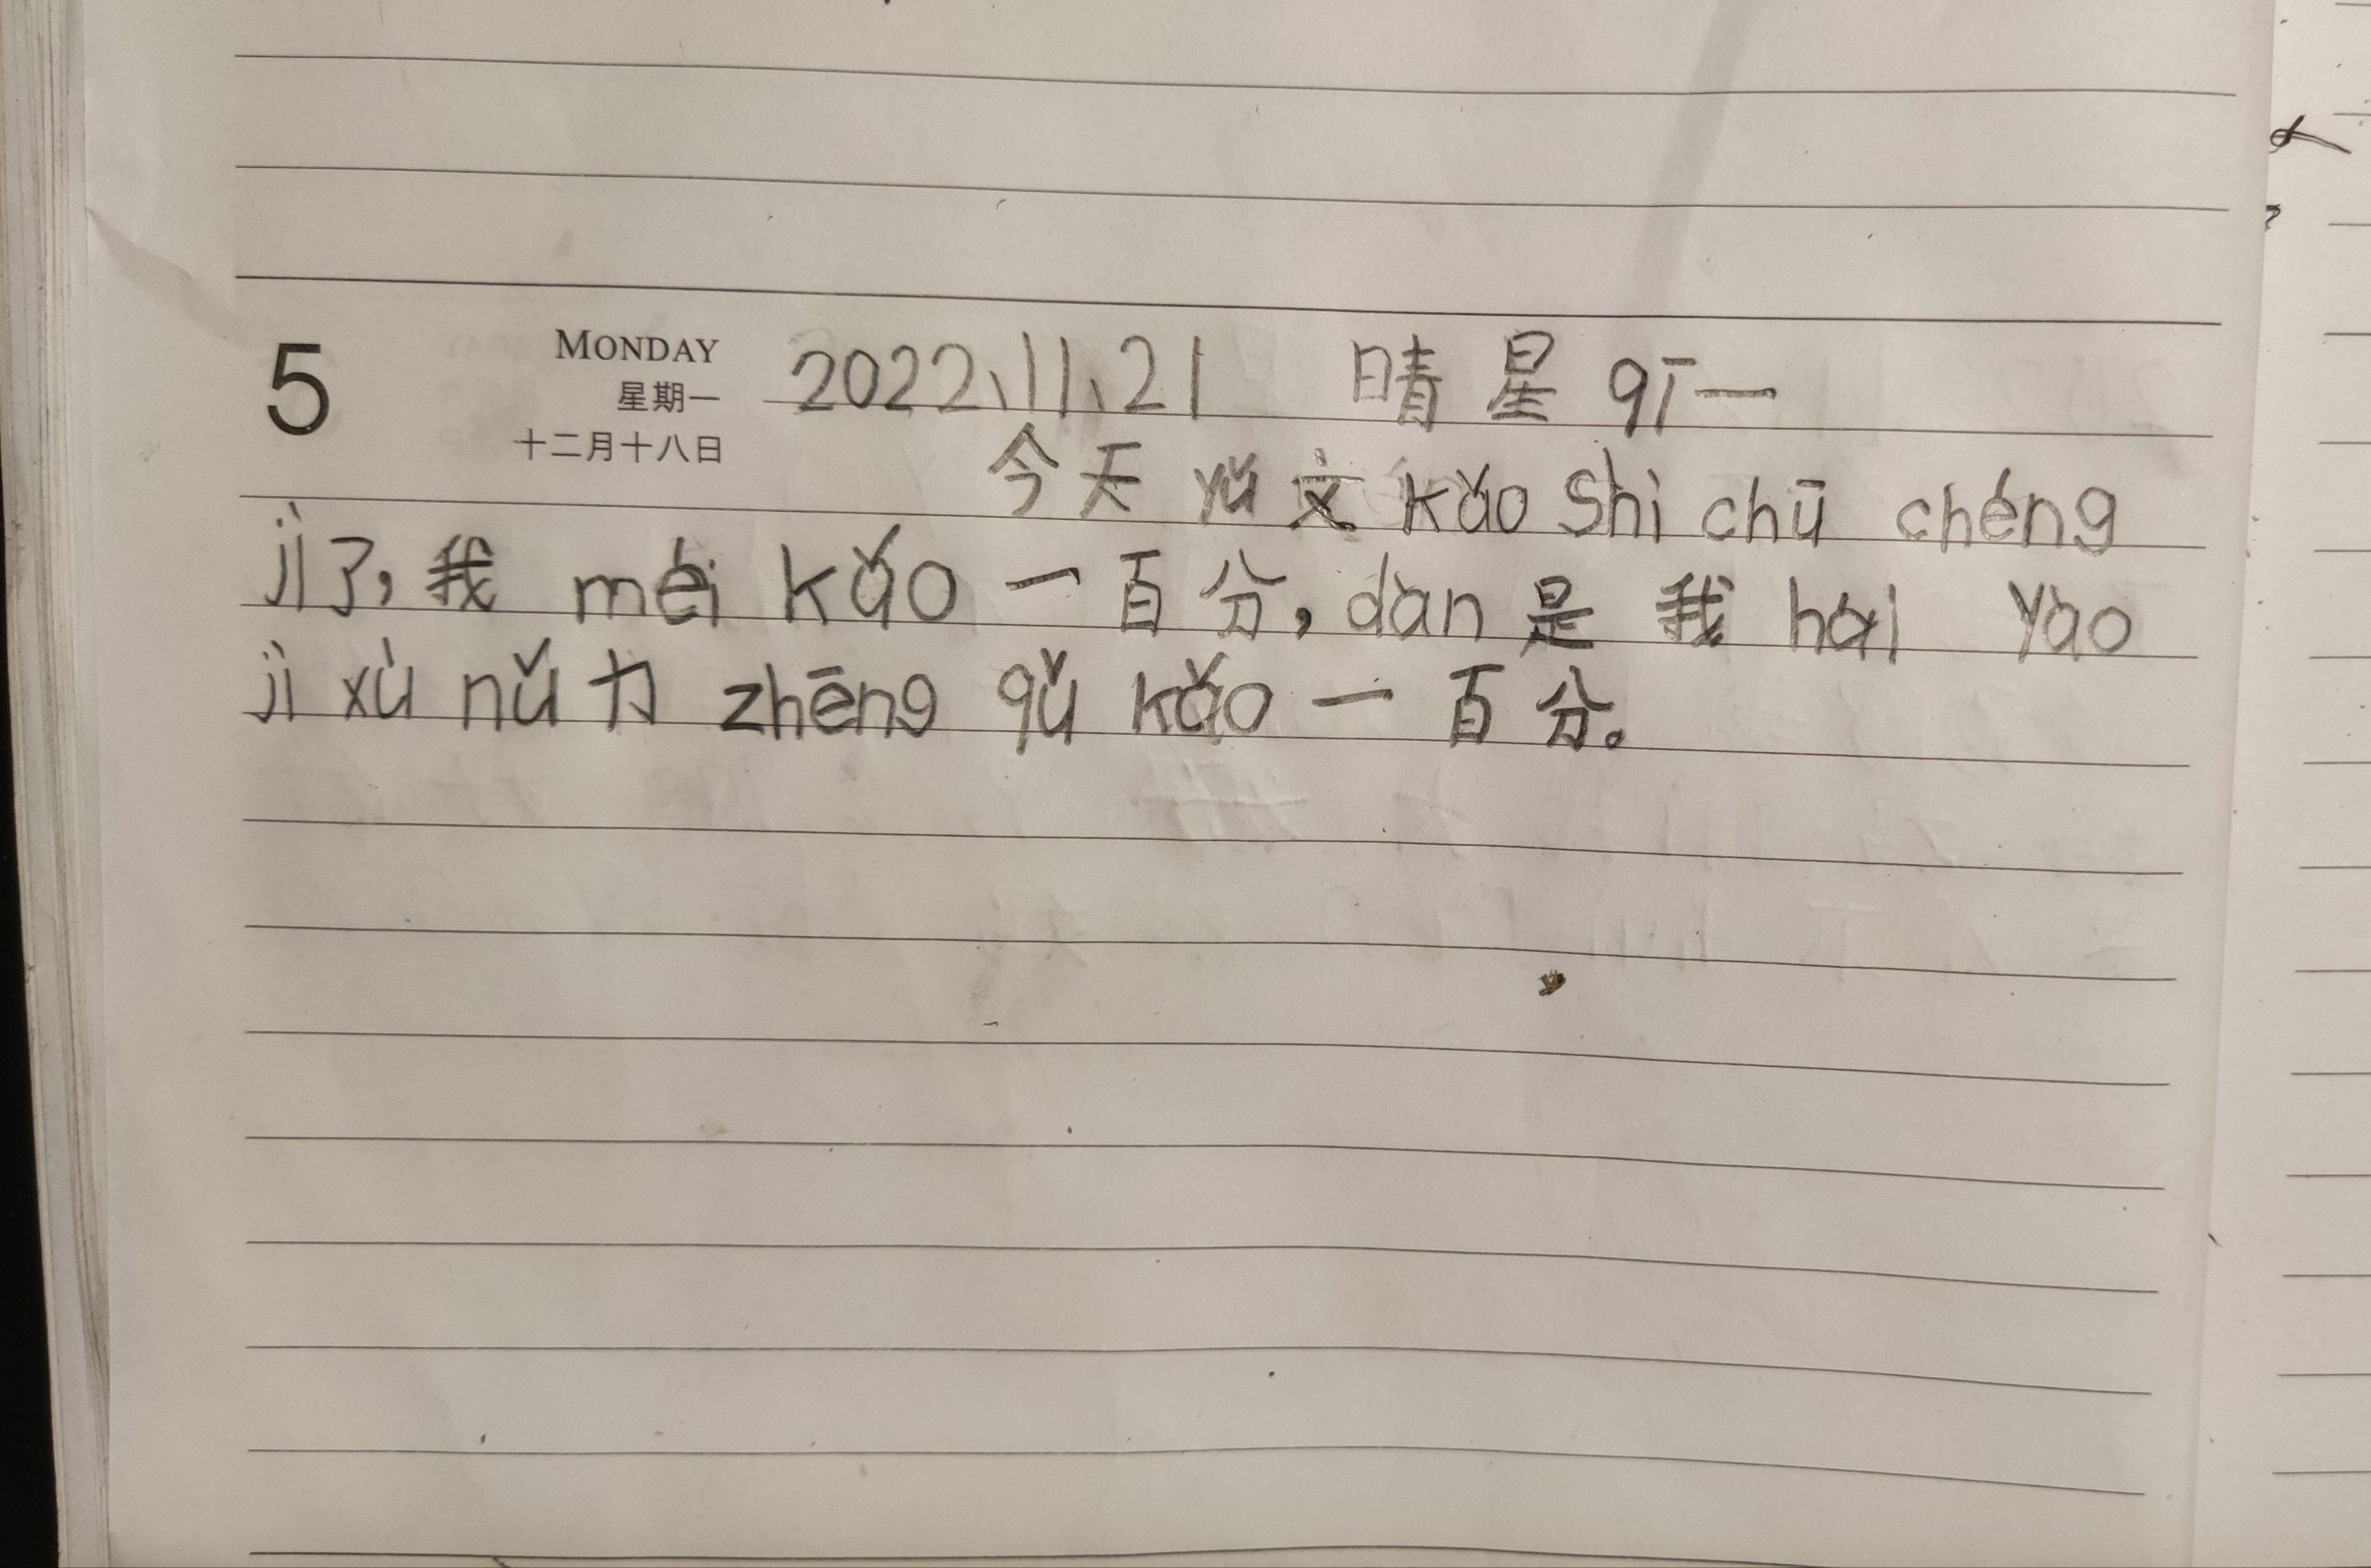 5 MONDAY 2022、11、21 晴 星 qī一
星期一
十二月十八日
今天 yǔ 文 kǎo Shì chū chéng
jì了，我 méi kǎo 一百分，dàn 是 我 hái yào
jì xù nǔ 力 zhēng qǔ kǎo 一百分。